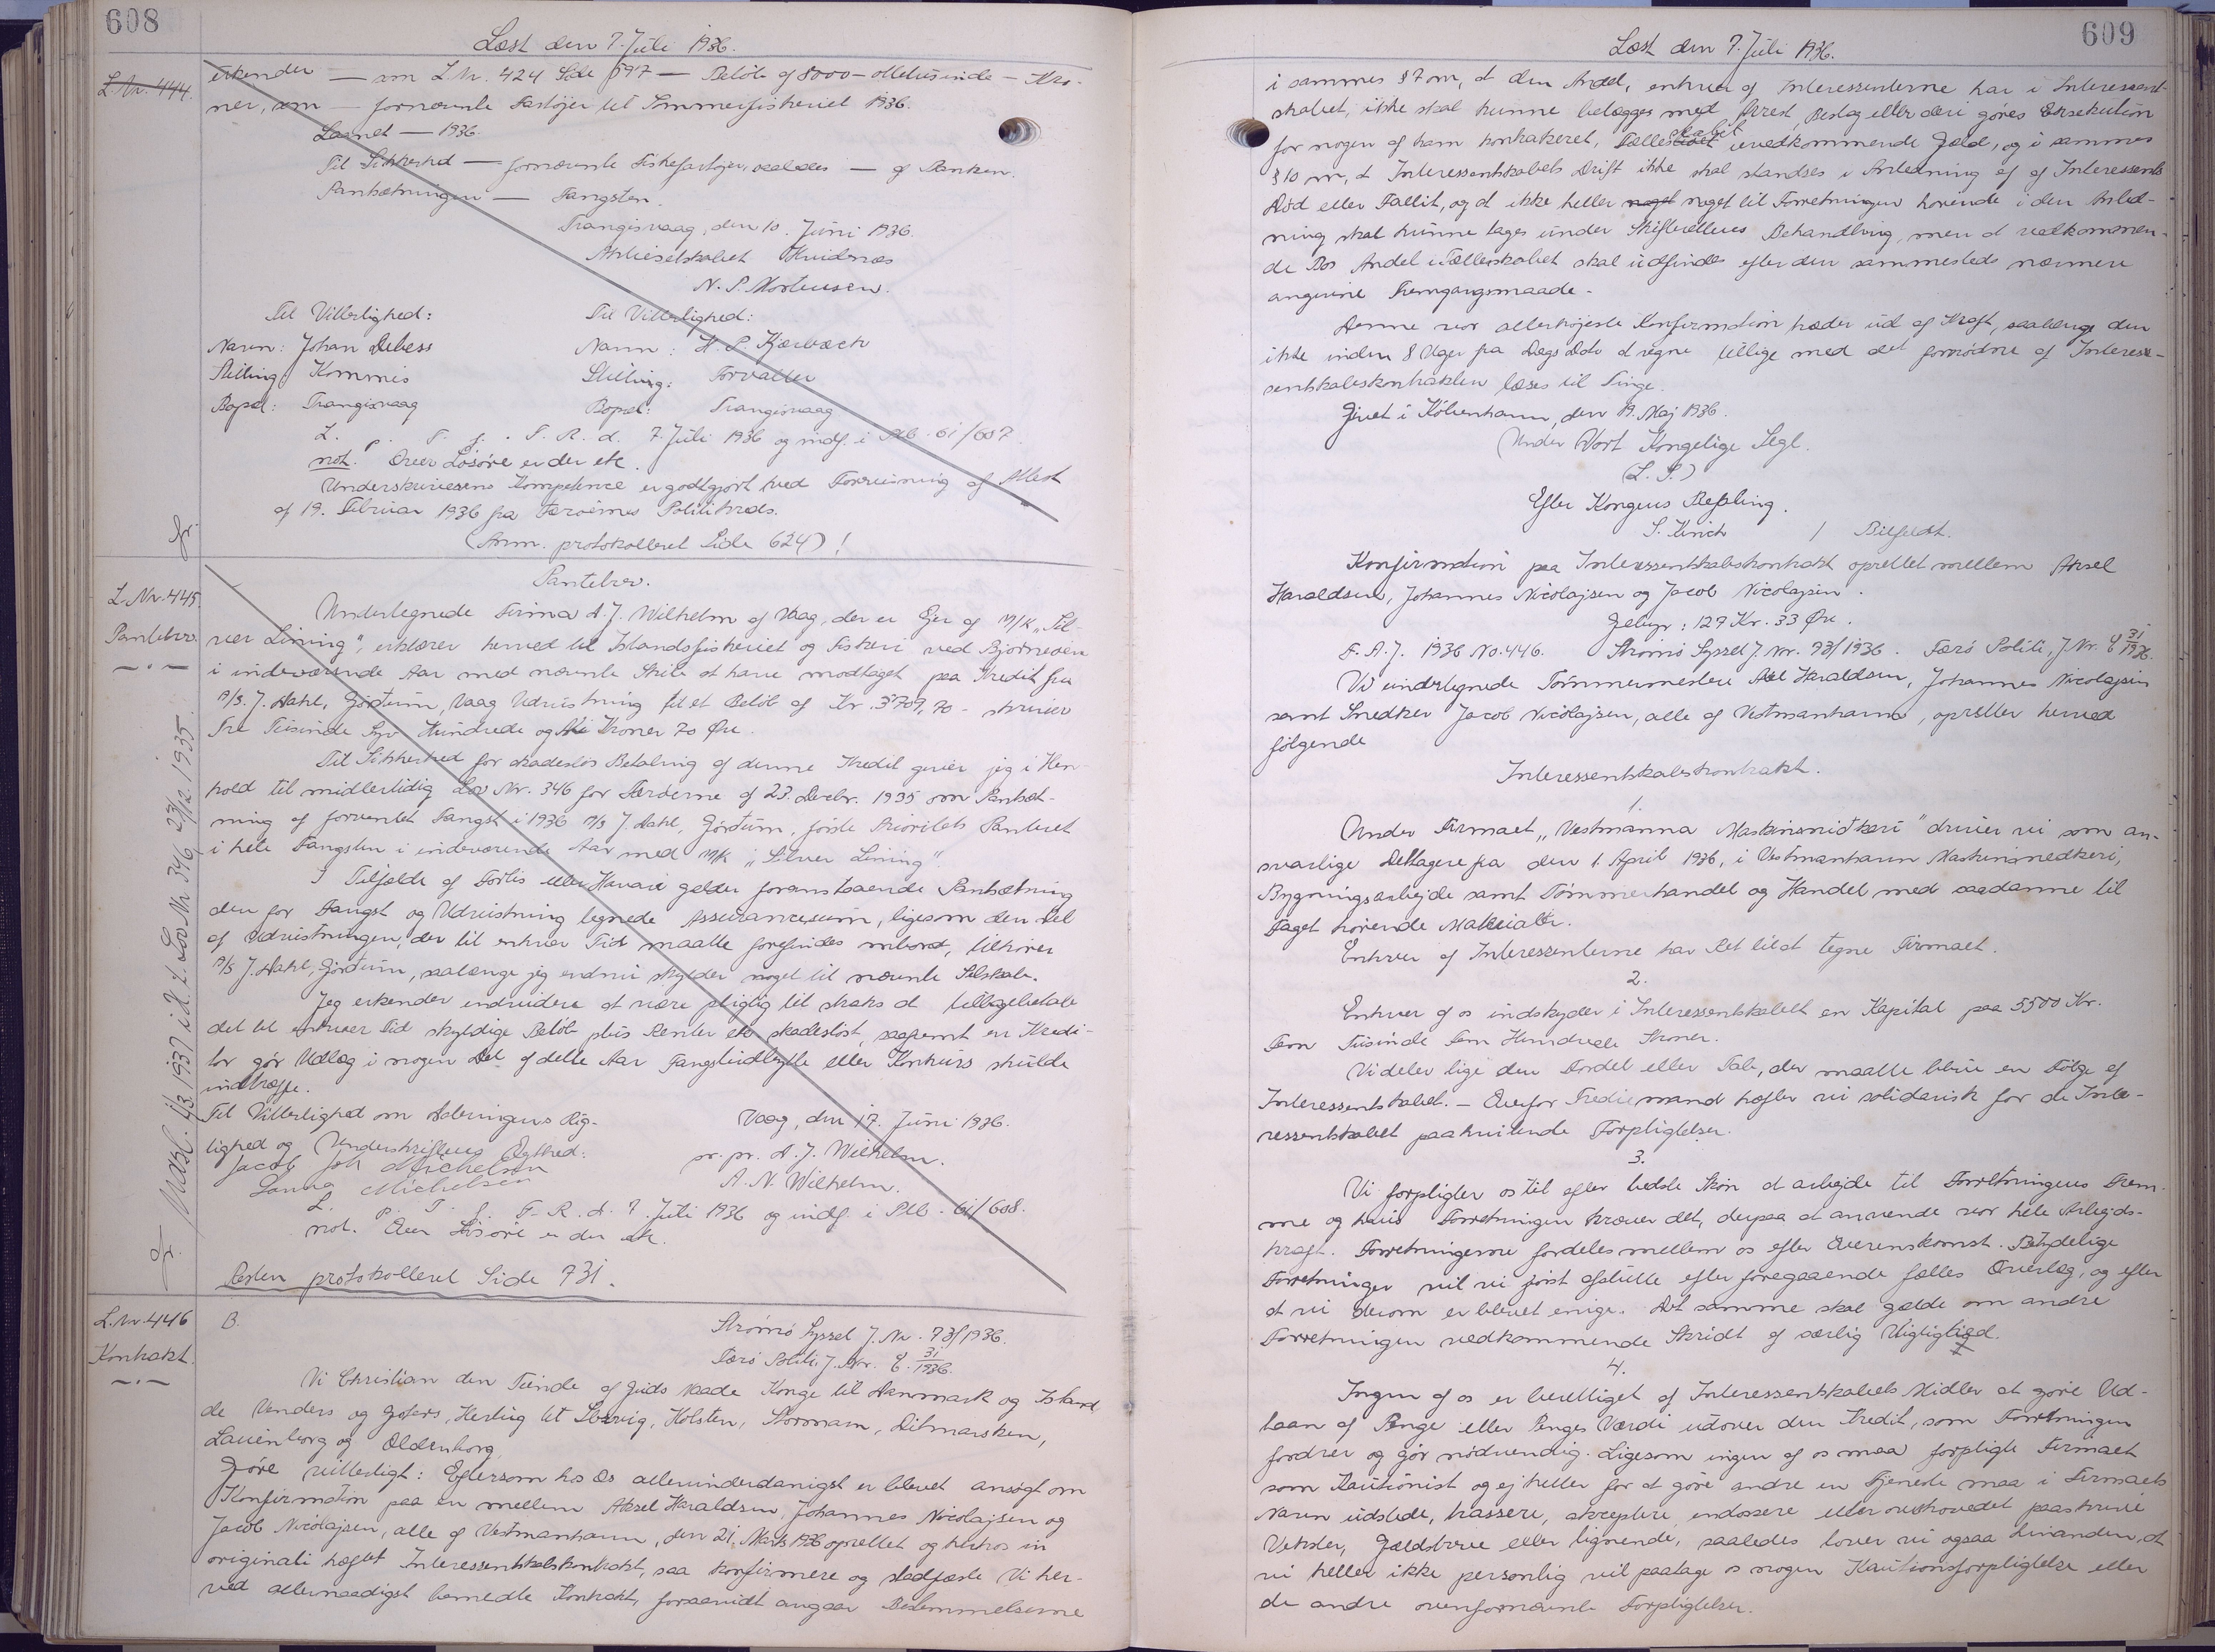 608
Læst den 7. Juli 1936.
L.Nr. 444.
erkender — som L.Nr. 424 Side 597 — Beløb af 8000 — ottetusinde — Kro-
ner, som — fornævnte Fartøjer til Sommerfiskeriet 1936.
Laanet — 1936.
Til Sikkerhed — fornævnte Fiskefartøjer, saaledes — af Banken.
Pantsætningen — Fangsten.
Trangisvaag, den 10. Juni 1936.
Aktieselskabet Hvidenæs
N. P. Mortensen.
Til Vitterlighed: Til Vitterlighed:
Navn: Johan Debess Navn: H. P. Kjærbæch
Stilling: Kommis Stilling: Forvalter
Bopæl: Trangisvaag Bopæl: Trangisvaag
L. p. T. f. F. R. d. 7. Juli 1936 og indf. i Ptb. 61/607
not. Over Løsøre er der etc.
Underskriverens Kompetence er godtgjort ved Forevisning af Attest
af 19. Februar 1936 fra Færøernes Politikreds.
(Anm. protokolleret Side 624)!
L.Nr. 445.
Pantebrev.
Pantebrev.
Undertegnede Firma A. J. Wilhelm af Vaag, der er Ejer af M/K „Sil-
ver Lining", erklærer herved til Islandsfiskeriet og Fiskeri ved Bjørneøen
i indeværende Aar med nævnte Skib at have modtaget paa Kredit fra
A/S. J. Dahl, Gjørdum, Vaag Udrustning til et Beløb af Kr. 3709,70 - skriver
Tre Tusinde Syv Hundrede og Ni Kroner 70 Øre.
Til Sikkerhed for skadesløs Betaling af denne Kredit giver jeg i Hen-
hold til midlertidig Lov Nr. 346 for Færøerne af 23. Decbr. 1935 om Pantsæt-
ning af forventet Fangst i 1936 A/S J. Dahl, Gjørdum, første Prioritets Panteret
i hele Fangsten i indeværende Aar med M/K „Silver Lining".
I Tilfælde af Forlis eller Havari gælder foranstaaende Pantsætning
den for Fangst og Udrustning tegnede Assurancesum, ligesom den Del
af Udrustningen, der til enhver Tid maatte forefindes ombord, tilhører
A/S J. Dahl, Gjørdum, saalænge jeg endnu skylder noget til nævnte Selskab.
Jeg erkender endvidere at være pligtig til straks at tilbagebetale
det til enhver Tid skyldige Beløb plus Renter etc skadesløst, saafremt en Kredi-
tor gør Udlæg i nogen Del af dette Aar Fangstudbytte eller Konkurs skulde
indtræffe.
Til Vitterlighed om Dateringens Rig- Vaag, den 17. Juni 1936.
lighed og Underskriftens Ægthed: pr. pr. A. J. Wilhelm.
Jacob Joh Michelsen A. N. Wilhelm.
Sanna Michelsen
L. P. T. f. F. R. d. 7. Juli 1936 og indf. i Ptb. 61/608.
not. Over Løsøre er der etc.
Resten protokolleret Side 731.
Udsl. 1/3. 1937 i H. t. Lov Nr. 346 23/12. 1935.
L.Nr. 446
Kontrakt.
B. Strømø Syssel J. Nr. 73/1936.
Færø Politi J. Nr. E. 31/1936.
Vi Christian den Tiende af Guds Naade Konge til Danmark og Island,
de Venders og Goters, Hertug til Slesvig, Holsten, Stormarn, Ditmarsken,
Lauenborg og Oldenborg
Gøre vitterligt: Eftersom hos Os allerunderdanigst er blevet ansøgt om
Konfirmation paa en mellem Aksel Haraldsen, Johannes Nicolajsen og
Jacob Nicolajsen, alle af Vestmanhavn, den 21. Marts 1936 oprettet og herhos in
originali hæftet Interessentskabskontrakt, saa konfirmere og stadfæste Vi her-
ved allernaadigst bemeldte Kontrakt, forsaavidt angaar Bestemmelserne
609
Læst den 7. Juli 1936.
i sammes § 7 om, at den Andel, enhver af Interessenterne har i Interessent-
skabet, ikke skal kunne belægges med Arrest, Beslag eller deri gøres Eksekution
for nogen af ham kontraheret, Fællesskabet uvedkommende Gæld, og i sammes
§ 10 om, at Interessentskabets Drift ikke skal standses i Anledning af af Interessents
Død eller Fallit, og at ikke heller noget noget til Forretningen hørende i den Anled-
ning skal kunne tages under Skifterettens Behandling, men at vedkommen-
de Bos Andel i Fællesskabet skal udfindes efter den sammesteds nærmere
angivne Fremgangsmaade.
Denne vor allerhøjeste Konfirmation træder ud af Kraft, saalænge den
ikke inden 8 Uger fra Dags Dato at regne tillige med det fornødne af Interes-
sentskabskontrakten læses til Tinge.
Givet i København, den 19. Maj 1936.
Under Vort Kongelige Segl.
(L. S.)
Efter Kongens Befaling.
S. Unich / Bilfeldt.
Konfirmation paa Interessentskabskontrakt oprettet mellem Aksel
Haraldsen, Johannes Nicolajsen og Jacob Nicolajsen.
Gebyr: 127 Kr. 33 Øre.
F. A. J. 1936 No. 446. Strømø Syssel J. Nr. 73/1936. Færø Politi, J. Nr. E 31/1936.
Vi undertegnede Tømmermestere Aksel Haraldsen, Johannes Nicolajsen
samt Snedker Jacob Nicolajsen, alle af Vestmanhavn, opretter herved
følgende
Interessentskabskontrakt.
1.
Under Firmaet „Vestmanna Maskinsniđkeri" driver vi som an-
svarlige Deltagere fra den 1. April 1936, i Vestmanhavn Maskinsnedkeri,
Bygningsarbejde samt Tømmerhandel og Handel med saadanne til
Faget hørende Materialer.
Enhver af Interessenterne har Ret til at tegne Firmaet.
2.
Enhver af os indskyder i Interessentskabet en Kapital paa 5500 Kr.
Fem Tusinde Fem Hundrede Kroner.
Vi deler lige den Fordel eller Tab, der maatte blive en Følge af
Interessentskabet. — Overfor Trediemand hæfter vi solidarisk for de Inte-
ressentskabet paahvilende Forpligtelser.
3.
Vi forpligter os til efter bedste Skøn at arbejde til Forretningens Frem-
me og hvis Forretningen kræver det, derpaa at anvende vor hele Arbejds-
kraft. Forretningerne fordeles mellem os efter Overenskomst. Betydelige
Forretninger vil vi først afslutte efter foregaaende fælles Overlæg, og efter
at vi derom er blevet enige. Det samme skal gælde om andre
Forretningen vedkommende Skridt af særlig Vigtighed.
4.
Ingen af os er berettiget af Interessentskabets Midler at gøre Ud-
laan af Penge eller Penges Værdi udover den Kredit, som Forretningen
fordrer og gør nødvendig. Ligesom ingen af os maa forpligte Firmaet
som Kautionist og ej heller for at gøre andre en Tjeneste maa i Firmaets
Navn udstede, trassere, akceptere, endossere eller overhovedet paaskrive
Veksler, Gældsbreve eller lignende, saaledes lover vi ogsaa hinanden, at
vi heller ikke personlig vil paatage os nogen Kautionsforpligtelse eller
de andre ovenfornævnte Forpligtelser.